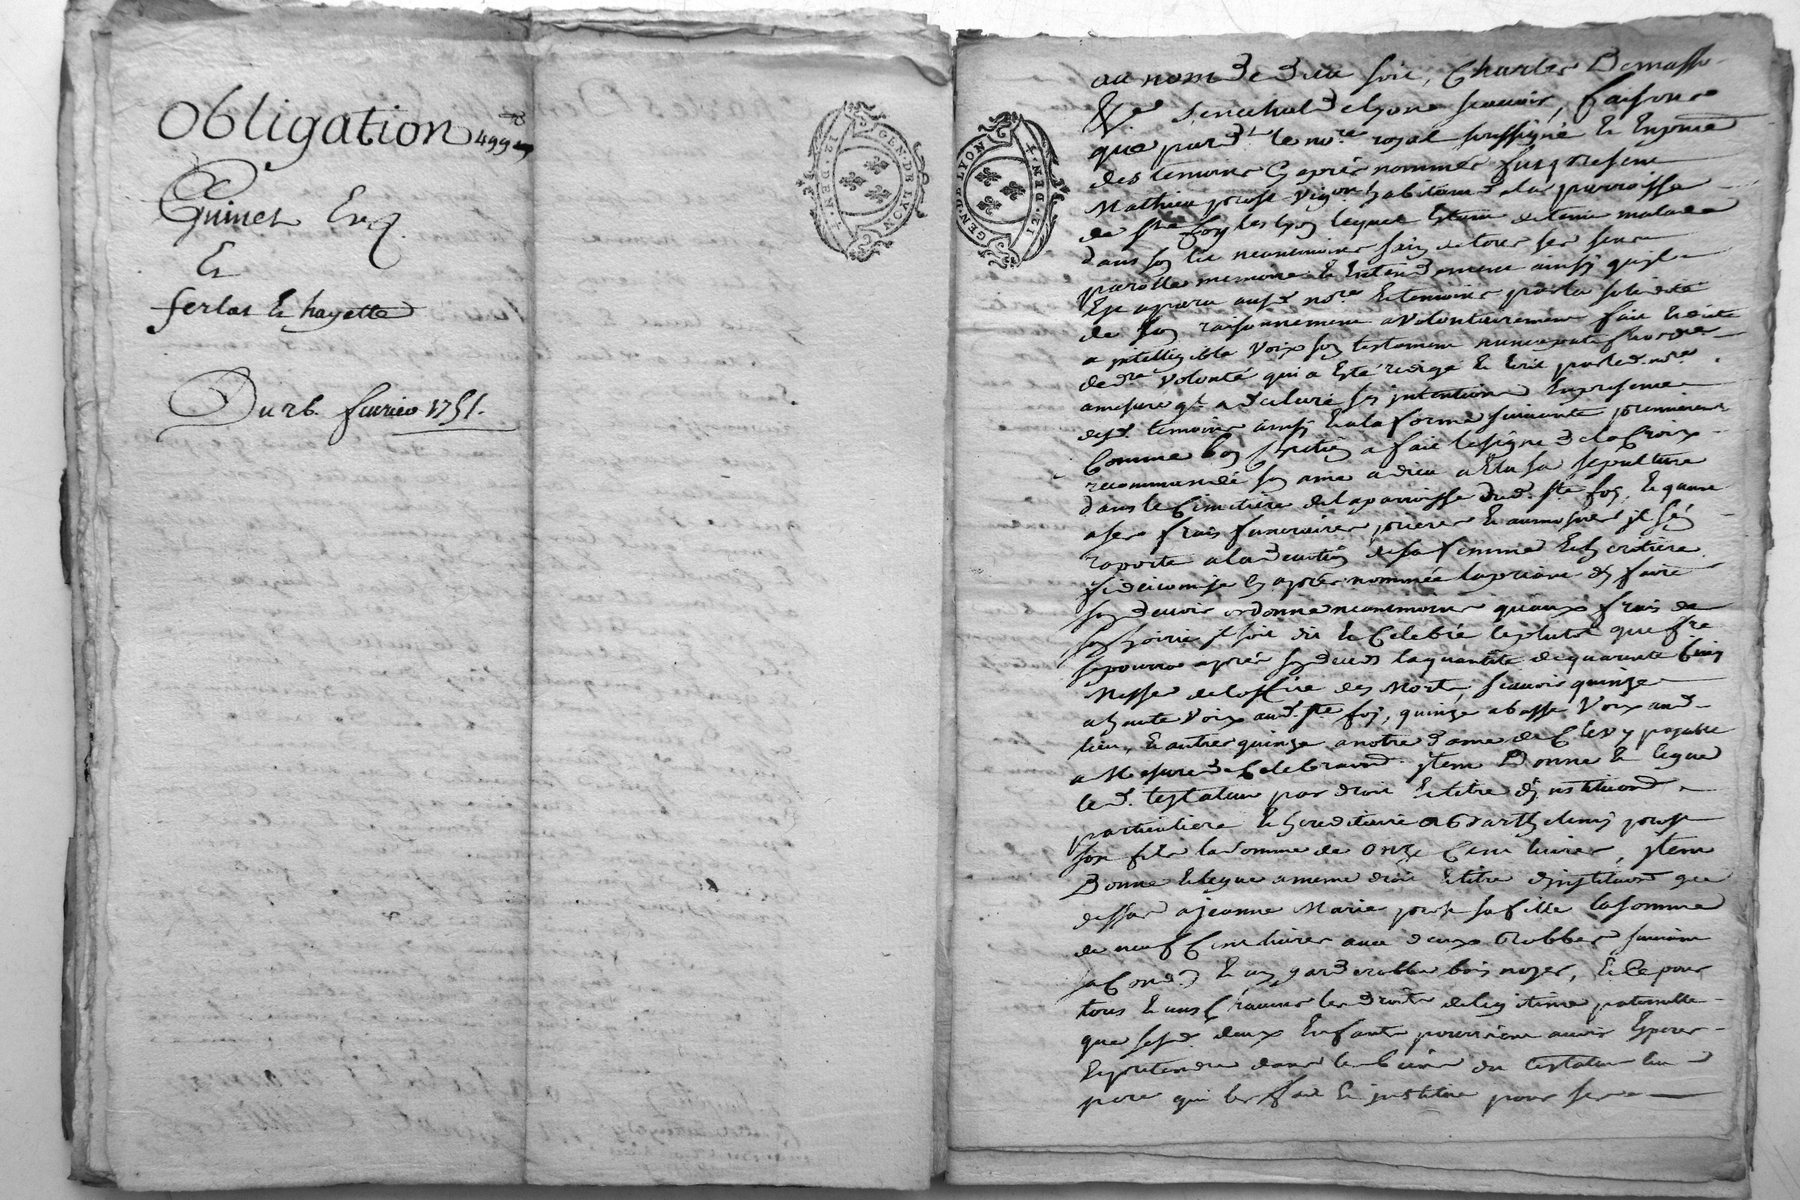 Obligation 499
Guinet Enq.
Et
ferlat Et hayette
Du 26. fevrier 1751.
GEN. DE LYON
I2. DEN.
GEN. DE LYON
I2. DEN.
au nom de dieu soit, Charles Demasso
Senechal de lyon scavoir, faisons
que pard.t le no.re royal soussigné Et En presence
des temoins Cy aprés nommés fut present
Mathieu habitant de la parroisse
de s.te foy les lyon lequel Etant detenu malade
dans son lit neantmoins sain de tous ses sens
parolle memoire Et Entendement ainsy quil
Est aparu aud. no.re Et temoins par la solidité
de son raisonnement a volontairement fait Et dicté
a intelligible voix son testament nuncupatif Et ordre
de d.re volonté qui a Eté redigé Et Ecrit par led. no.re
amesure q.l a declaré ses intentions En presence
desd. temoins ainsy Et a la forme suivante premierem.t
Comme bon Chretien a fait le signe de la Croix
recommandé son ame a dieu a Elu sa sepulture
dans le Cimetiere de la parroisse dud. s.te foy, Et quant
a ses frais funeraires prieres Et aumosnes il s'en
raporte a la devotion de sa femme Et heritiere
fideicomise Cy aprés nommée la priant d'en faire
son devoir ordonne neantmoins qu'aux frais de
son hoirie il soit dit Et Celebré le plutot que fre
se pourra aprés son deces la quantité de quarante Cinq
Messes de l'office des Morts, scavoir quinze
a haute voix aud. s.te foy, quinze a basse voix aud.
lieu, Et autres quinze a notre dame de payable
a Mesure de Celebraon. jtem Donne Et legue
led. testateur par droit Et titre d'jnstitution
particuliere Et hereditaire a Barthelemy
son fils la somme de onze Cent livres, jtem
Donne Et legue a meme droit Et titre d'jnstitution que
dessus a jeanne Marie sa fille la somme
de neuf Cent livres avec deux Robbes suivant
sa Cond.on Et un garderobbe bois noyer, Et Ce pour
tous Et uns Chacuns les droits de legitime paternelle
que sesd. deux Enfants pourroient avoir Esperer
Et pretendre dans les biens du testateur leur
pere qui les fait Et jnstitue pour ses